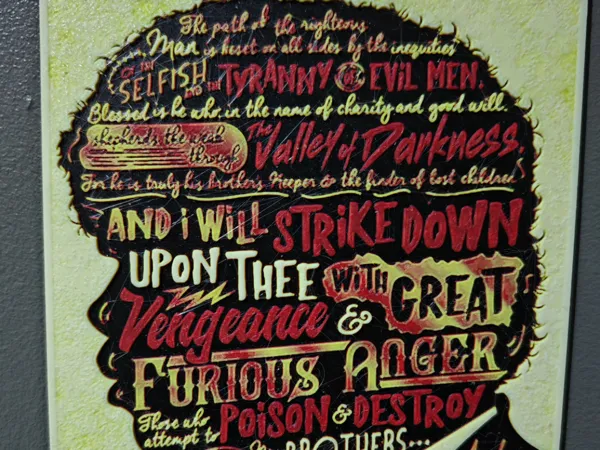 The path of the righteous
Man is beset on all sides by the inequities
OF THE SELFISH AND THE TYRANNY OF EVIL MEN.
Blessed is he who, in the name of charity and good will.
shepherds the weak
through The Valley of Darkness.
For he is truly his brother's Keeper & the finder of lost children
AND i WiLL STRiKE DOWN
UPON THEE WiTH GREAT
Vengeance &
FURIOUS ANGER
Those who
attempt to POiSON & DESTROY
BROTHERS...